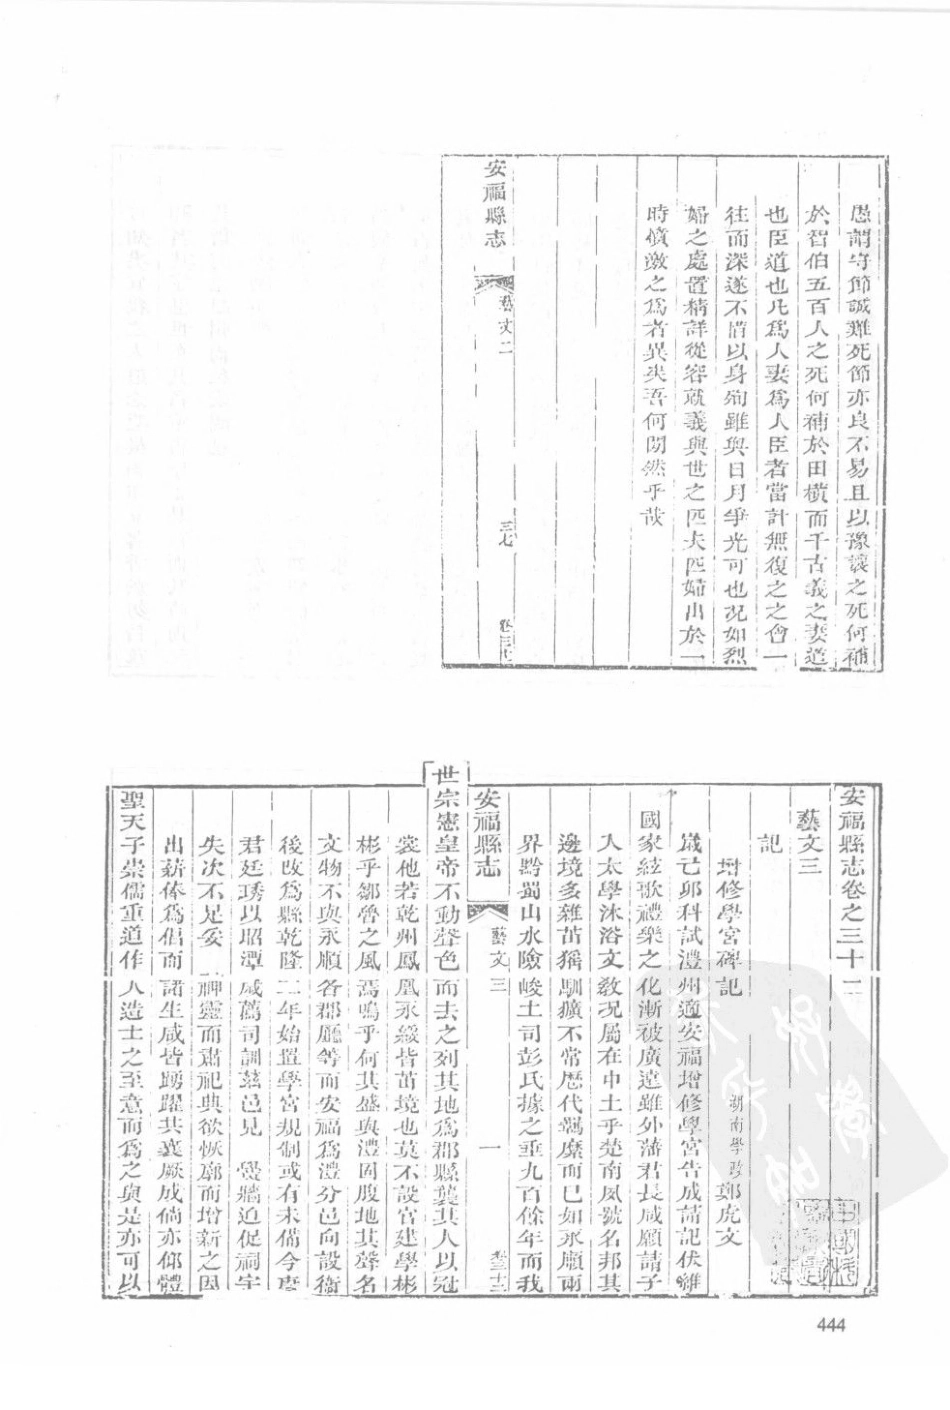 愚謂守節誠難死節亦良不易且以豫讓之死何補
於智伯五百人之死何補於田橫而千古義之妻道
也臣道也凡爲人妻爲人臣者當計無復之之會一
往而深遂不惜以身殉雖與日月爭光可也況如烈
婦之處置精詳從容就義與世之匹夫匹婦出於一
時憤激之爲者異矣吾何閒然乎哉
安福縣志
藝文二
三七
安福縣志卷之三十二
藝文三
記
增修學宮碑記
湖南學政鄭虎文
歲己卯科試澧州適安福增修學宮告成請記伏維
國家絃歌禮樂之化漸被廣遠雖外藩君長咸願請子
入太學沐浴文教況屬在中土乎楚南夙號名邦其
邊境多雜苗猺馴獷不常歷代羈縻而已如永順兩
界黔蜀山水險峻土司彭氏據之垂九百餘年而我
安福縣志
藝文三
一
世宗憲皇帝不動聲色而去之列其地爲郡縣襲其人以冠
裳他若乾州鳳凰永綏皆苗境也莫不設官建學彬
彬乎鄒魯之風焉嗚乎何其盛與澧固腹地其聲名
文物不與永順各郡廳等而安福爲澧分邑向設衞
後改爲縣乾隆二年始置學宮規制或有未備今
君廷琇以昭潭咸薦司訓茲邑見 黌牆迫促祠宇
失次不足妥 神靈而肅祀典欲恢廓而增新之因
出薪俸爲倡而諸生咸皆踴躍共襄厥成倘亦仰體
聖天子崇儒重道作人造士之至意而爲之與是亦可以
444